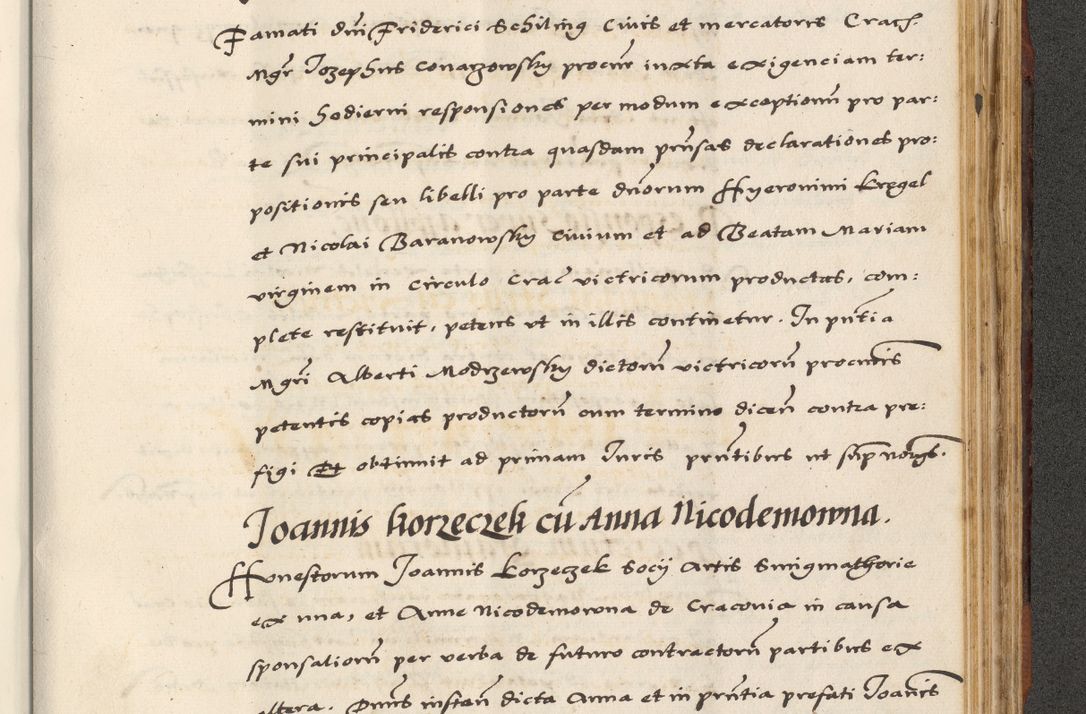 Famati dni Friderici Schiling Civis et mercatoris Crac.
Mgr Iozephus Conarzowsky procur iuxta exigenciam ter:
mini hodierni responsiones per modum exceptionum pro par:
te sui principalis contra quasdam prnsas declarationes pro:
positionis seu libelli pro parte dnorum Hyeronimi Kregel
et Nicolai Baranowsky Civium et ad Beatam Mariam
virginem in Circulo Crac victricorum productas, com:
plete restituit, petens ut in illis continetur. In pntia
Mgri Alberti Modrzewsky dictorum victricorum procuris
petentis copias productorum cum termino dicen contra pre:
figi Et obtinuit ad primam Iuris prntibus ut sup
Joannis Korzeczek cu Anna Nicodemowna.
Honestorum Joannis Korzeczek Socij Artis Swigmathorie
ex una, et Anne Nicodemowna de Cracovia in causa
sponsaliorum per verba de futuro contractorum partibus ex
altera. Dnus instan dicta Anna et in prntia prefati Joannis